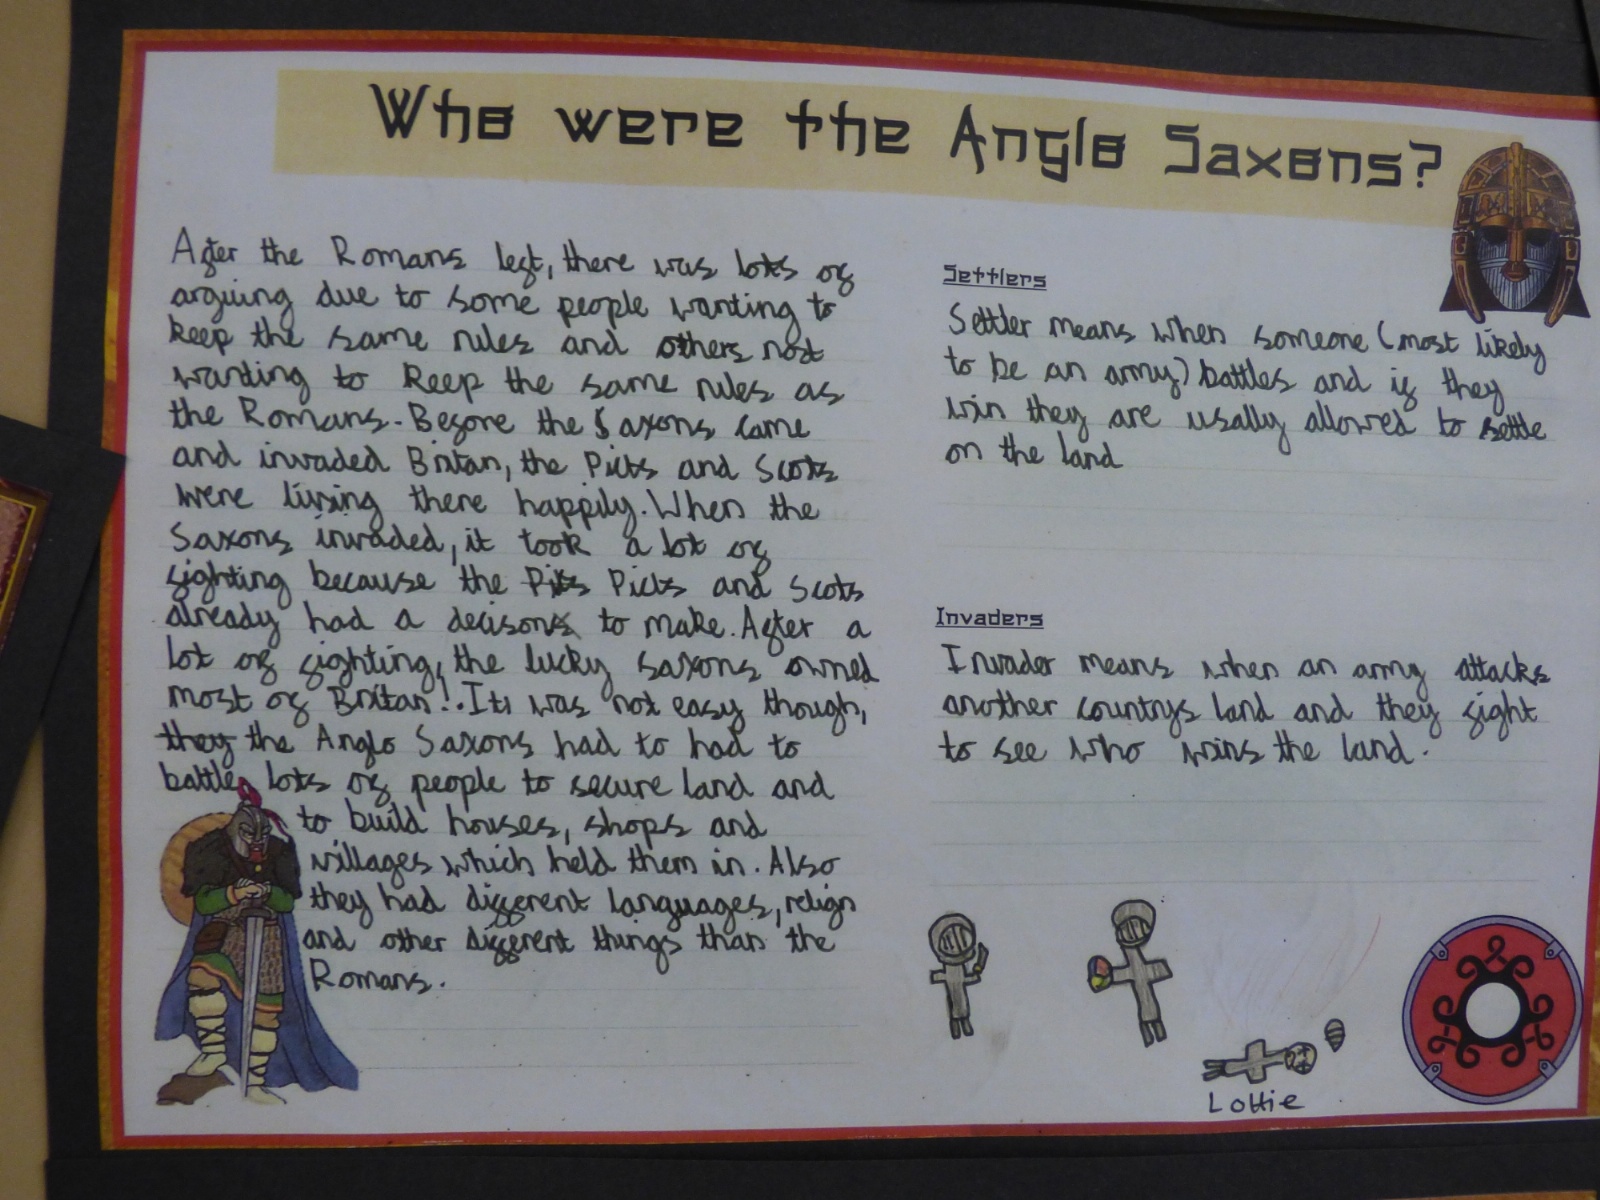 Who were the Anglo Saxons?
After the Romans left, there was lots of
arguing due to some people wanting to
keep the same rules and others not
wanting to keep the same rules as
the Romans. Before the Saxons came
and invaded Britan, the Picts and Scots
were living there happily. When the
Saxons invaded, it took a lot of
fighting because the Picts and Scots
already had a decison to make. After a
lot of fighting, the lucky saxons owned
most of Britan!. It was not easy though,
they the Anglo Saxons had to had to
battle lots of people to secure land and
to build houses, shops and
villages which held them in. Also
they had different languages, relign
and other different things than the
Romans.
Settlers
Settler means when someone (most likely
to be an army) battles and if they
win they are usally allowed to settle
on the land
Invaders
Invader means when an army attacks
another countrys land and they fight
to see who wins the land.
Lottie